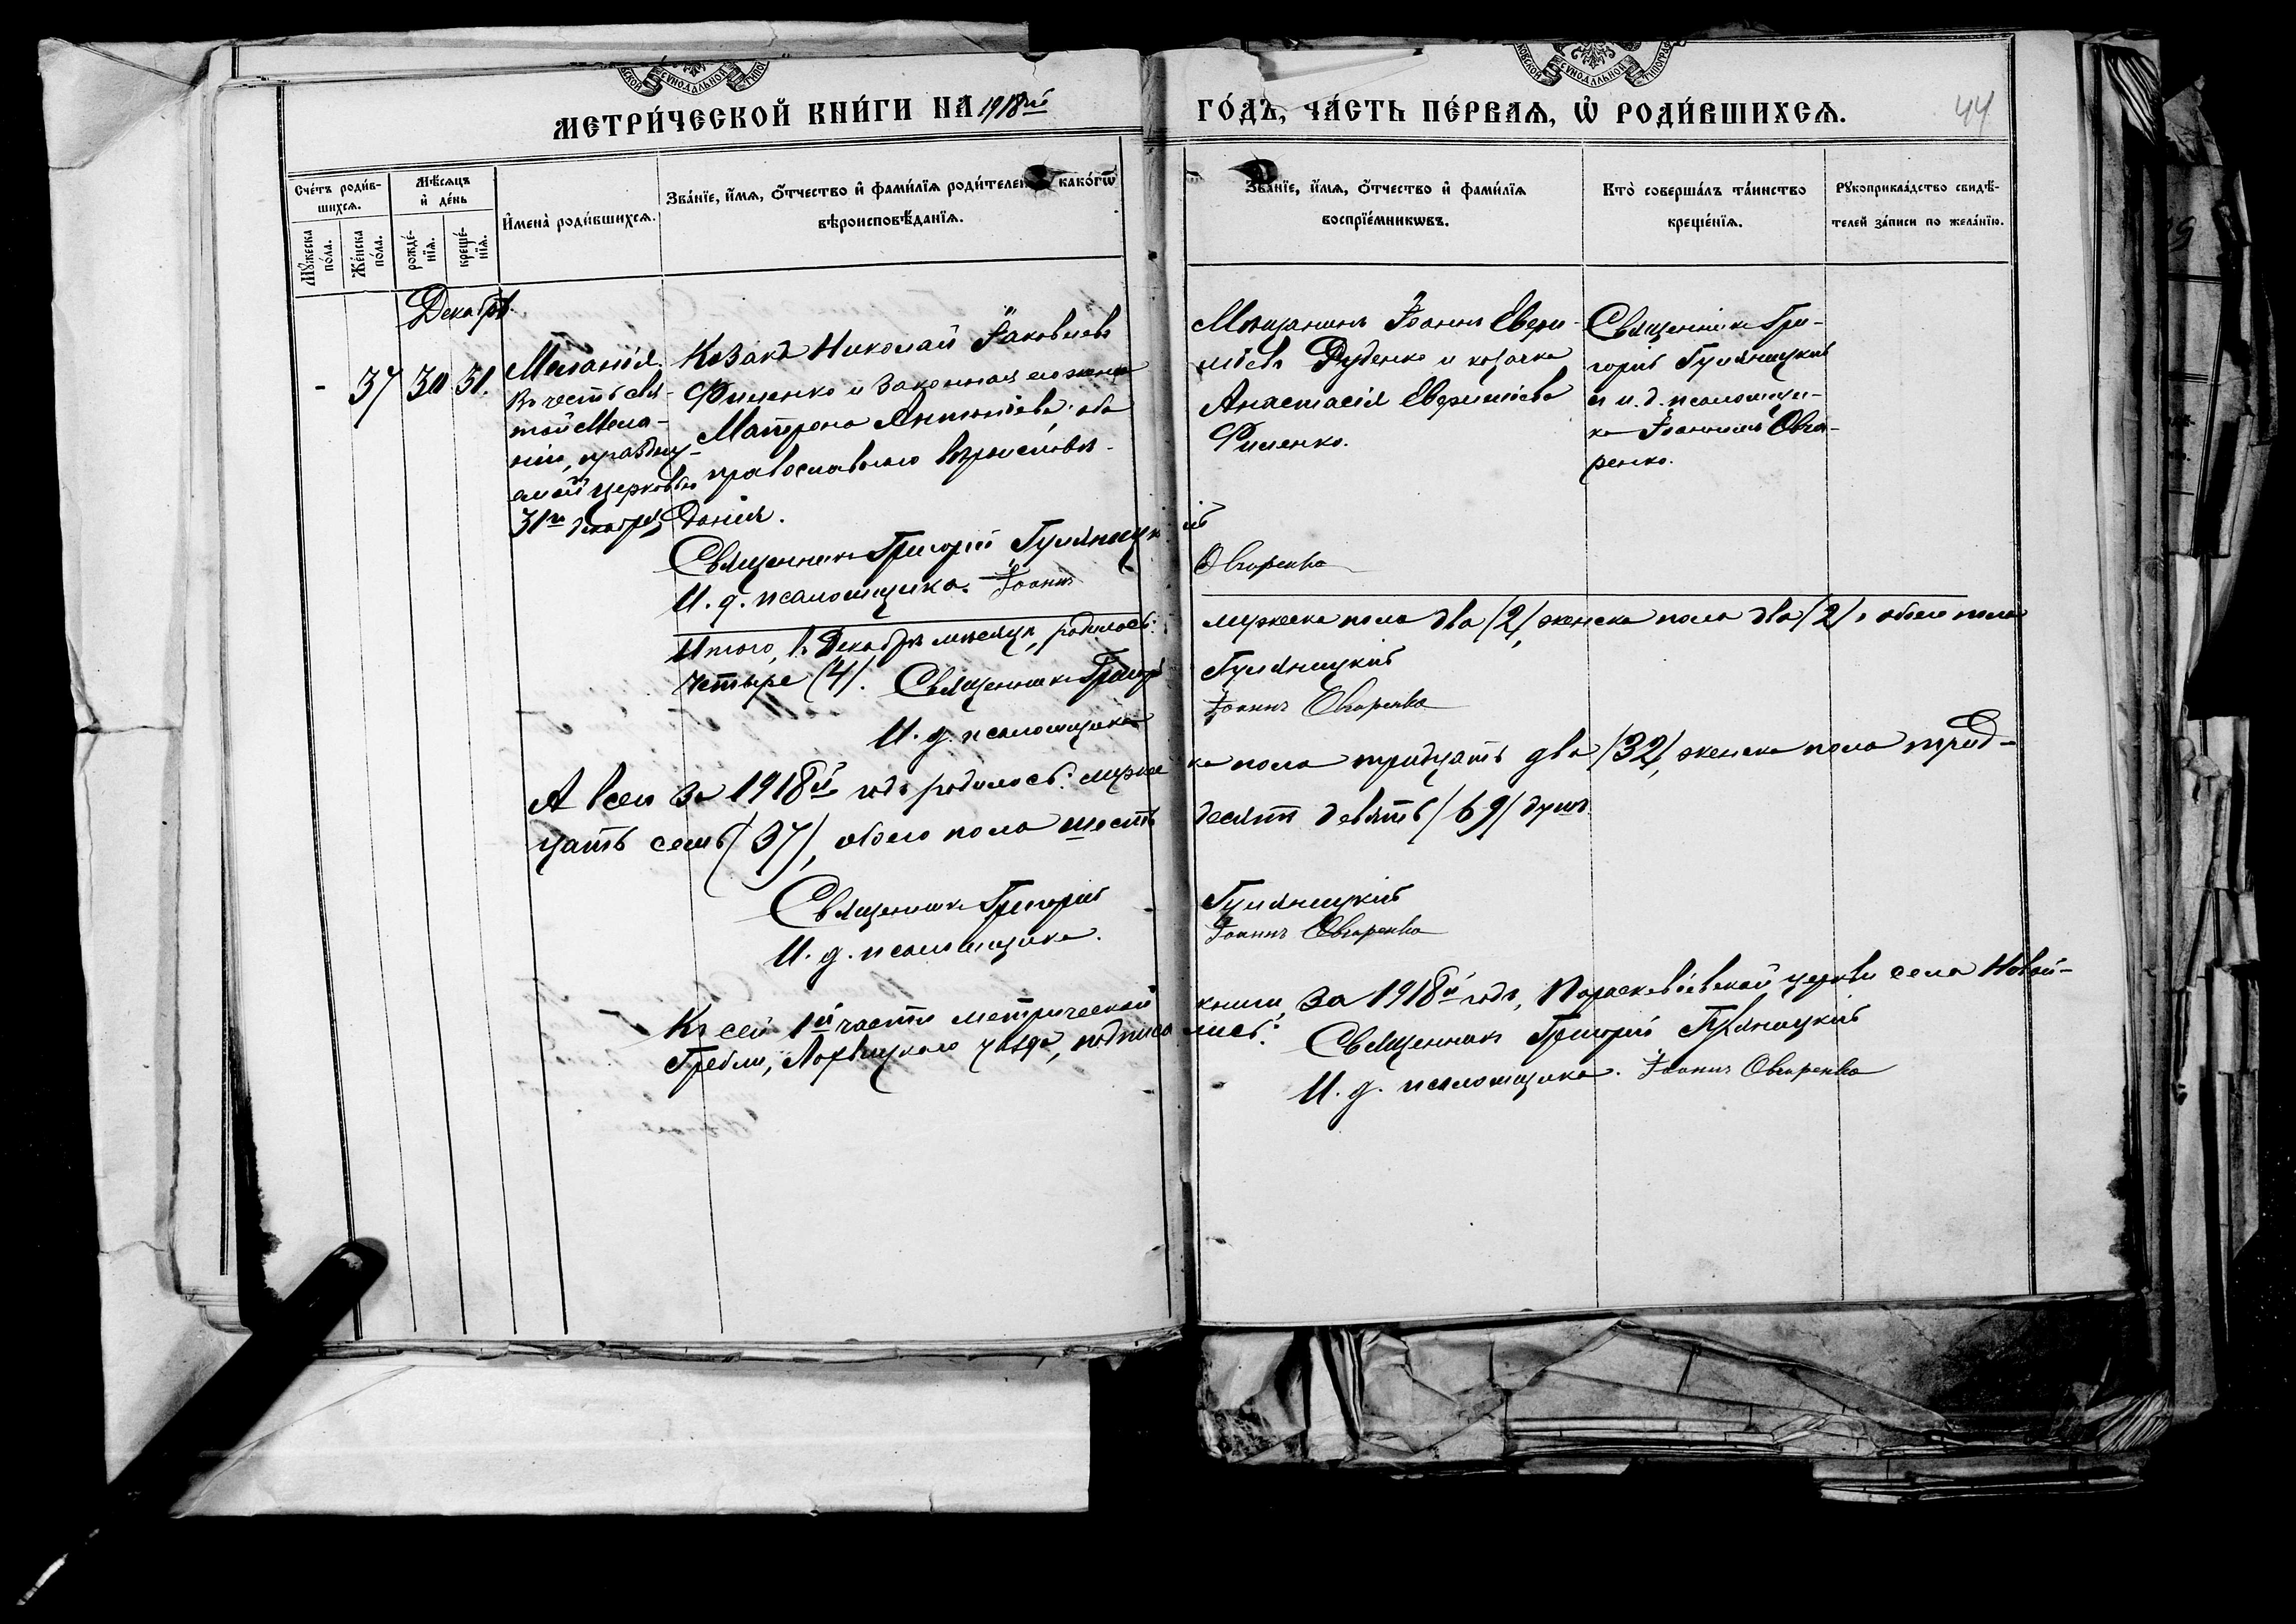 МЕТРИ́ЧЕСКОЙ КНИ́ГИ НА 1918ый ГО́ДЪ, ЧА́СТЬ ПЕ́РВАЯ, Ѡ҆ РОДИ́ВШИХСЯ.
44
Сче́тъ роди́в-
шихся.
Мѣ́сяцъ
и҆ де́нь
Мꙋ́жеска
по́ла.
Же́нска
по́ла.
рожде́-
нїя.
креще́-
нїя.
И҆мена̀ роди́вшихся.
Зва́нїе, и҆́мя, ѻ҆́тчество и҆ фами́лїя роди́телей како́гѡ
вѣроисповѣ́данїя.
Зва́нїе, и҆́мя, ѻ҆́тчество и҆ фами́лїя
воспрїе́мникѡвъ.
Кто̀ соверша́лъ та́инство
креще́нїя.
Рꙋкоприкла́дство свидѣ́-
телей за́писи по жела́нїю.
Декабрь.
- 37 30 31.
Меланія
въ честь свя-
той Мела-
ніи, праздну-
емой церковью
31го декабря
Козакъ Николай Іаковлевъ
Фименко и законная его жена
Матрона Антоніева оба
православнаго вѣроисповѣ-
данія.
Мѣщанинъ Іоаннъ Евфи-
міевъ Руденко и козачка
Анастасія Евфиміева
Фименко.
Священникъ Гри-
горій Гуляницкій
и и. д. псаломщи-
ка Іоаннъ Овча-
ренко.
Священникъ Григорій Гуляницкій
И. д. псаломщика. Іоаннъ Овчаренко
Итого, въ Декабрѣ мѣсяцѣ, родилось: мужеска пола два /2/, женска пола два /2/, обоего пола
четыре /4/. Священникъ Григорій Гуляницкій
И. д. псаломщика Іоаннъ Овчаренко
А всего за 1918й годъ родилось: мужеска пола тридцать два /32/, женска пола трид-
цать семь /37/, обоего пола шестьдесятъ девять /69/ душъ.
Священникъ Григорій Гуляницкій
И. д. псаломщика. Іоаннъ Овчаренко
Къ сей 1й части метрической книги, за 1918й годъ, Параскевіевской церкви села Новой-
Гребли, Лохвицкаго уѣзда, подписались:
Священникъ Григорій Гуляницкій
И. д. псаломщика. Іоаннъ Овчаренко